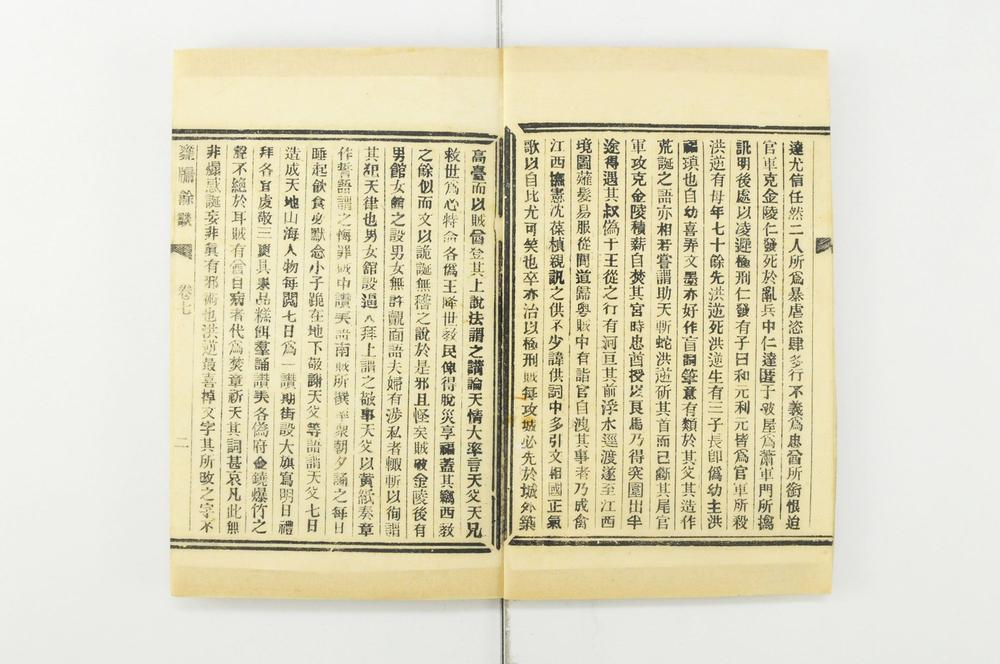 達尤信任然二人所爲暴虐恣肆多行不義爲忠酋所銜恨迫
官軍克金陵仁發死於亂兵中仁達匿于破屋爲蕭軍門所擒
訊明後處以凌遲極刑仁發有子曰和元利元皆爲官軍所殺
洪逆有母年七十餘先洪逆死洪逆生有三子長卽僞幼主洪
福瑱也自幼喜弄文墨亦好作盲詞筆意有類於其父其造作
荒誕之語亦相若嘗謂助天斬蛇洪逆斫其首而己斷其尾官
軍攻克金陵積薪自焚其宮時忠酋授以良馬乃得突圍出半
途得遇其叔僞干王從之行有河亘其前浮水逕渡遂至江西
境圖薙髮易服從間道歸粵賊中有詣官自洩其事者乃成禽
江西撫憲沈葆楨親訊之供不少諱供詞中多引文相國正氣
歌以自比尤可笑也卒亦治以極刑賊每攻城必先於城外築
高臺而以賊酋登其上說法謂之講論天情大率言天父天兄
救世爲心特命各僞王降世敎民俾得脫災享福蓋其竊西敎
之餘似而文以詭誕無稽之說於是邪且怪矣賊破金陵後有
男館女館之設男女無許覿面語夫婦有涉私者輒斬以徇謂
其犯天律也男女館設過入拜上謂之敬事天父以黃紙奏章
作誓語謂之悔罪賊中讚美語南賊所撰至衆朝夕誦之每日
睡起飮食必默念小子跪在地下敬謝天父等語謂天父七日
造成天地山海人物每閱七日爲一讚期街設大旗寫明日禮
拜各宜虔敬三更具果品糕餌羣誦讚美各僞府金鐃爆竹之
聲不絕於耳賊有曾日病者代爲焚章祈天其詞甚哀凡此無
非煽惑誕妄非眞有邪術也洪逆最喜掉文字其所改之字不
甕牖餘談
卷七
二